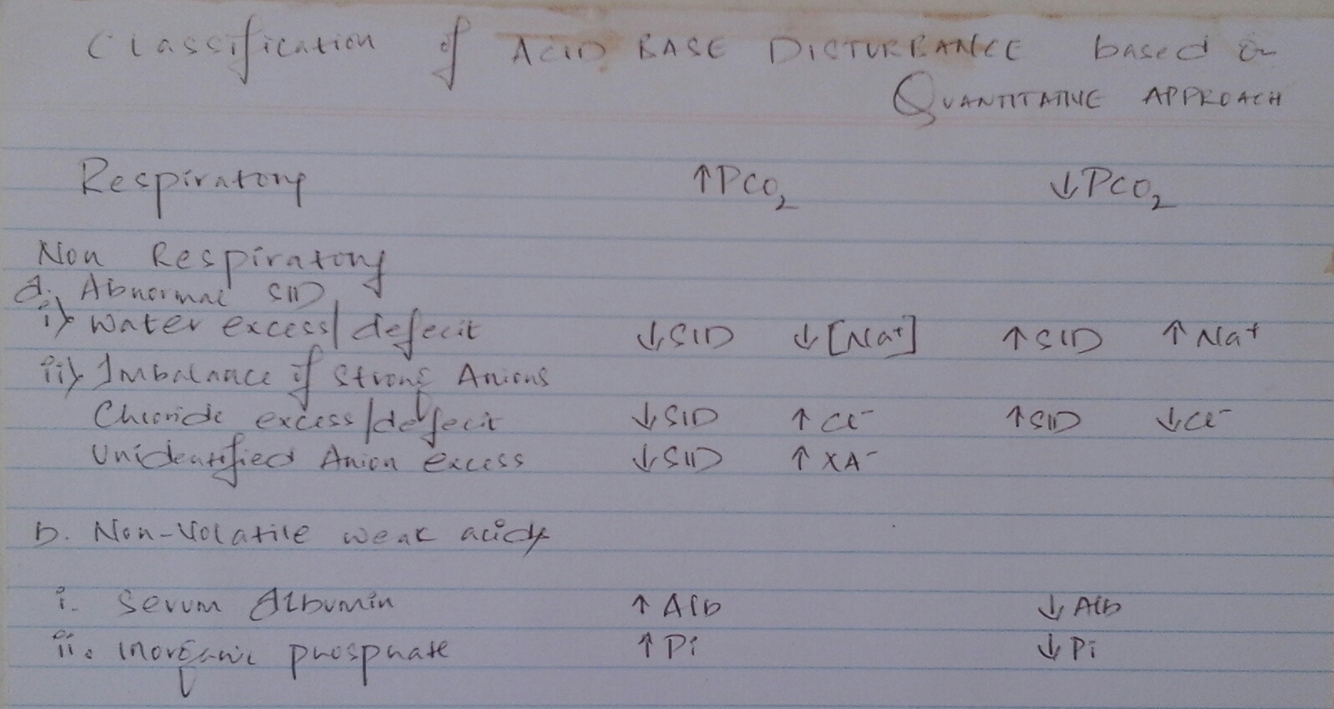 Classification of ACID BASE DISTURBANCE based on
QUANTITATIVE APPROACH
Respiratory ↑PCO₂ ↓PCO₂
Non Respiratory
a. Abnormal SID
i) Water excess/defecit ↓SID ↓[Na⁺] ↑SID ↑Na⁺
ii) Imbalance of Strong Anions
Chloride excess/defecit ↓SID ↑Cl⁻ ↑SID ↓Cl⁻
Unidentified Anion excess ↓SID ↑XA⁻
b. Non-Volatile weak acids
i. Serum Albumin ↑Alb ↓Alb
ii. Inorganic phosphate ↑Pi ↓Pi